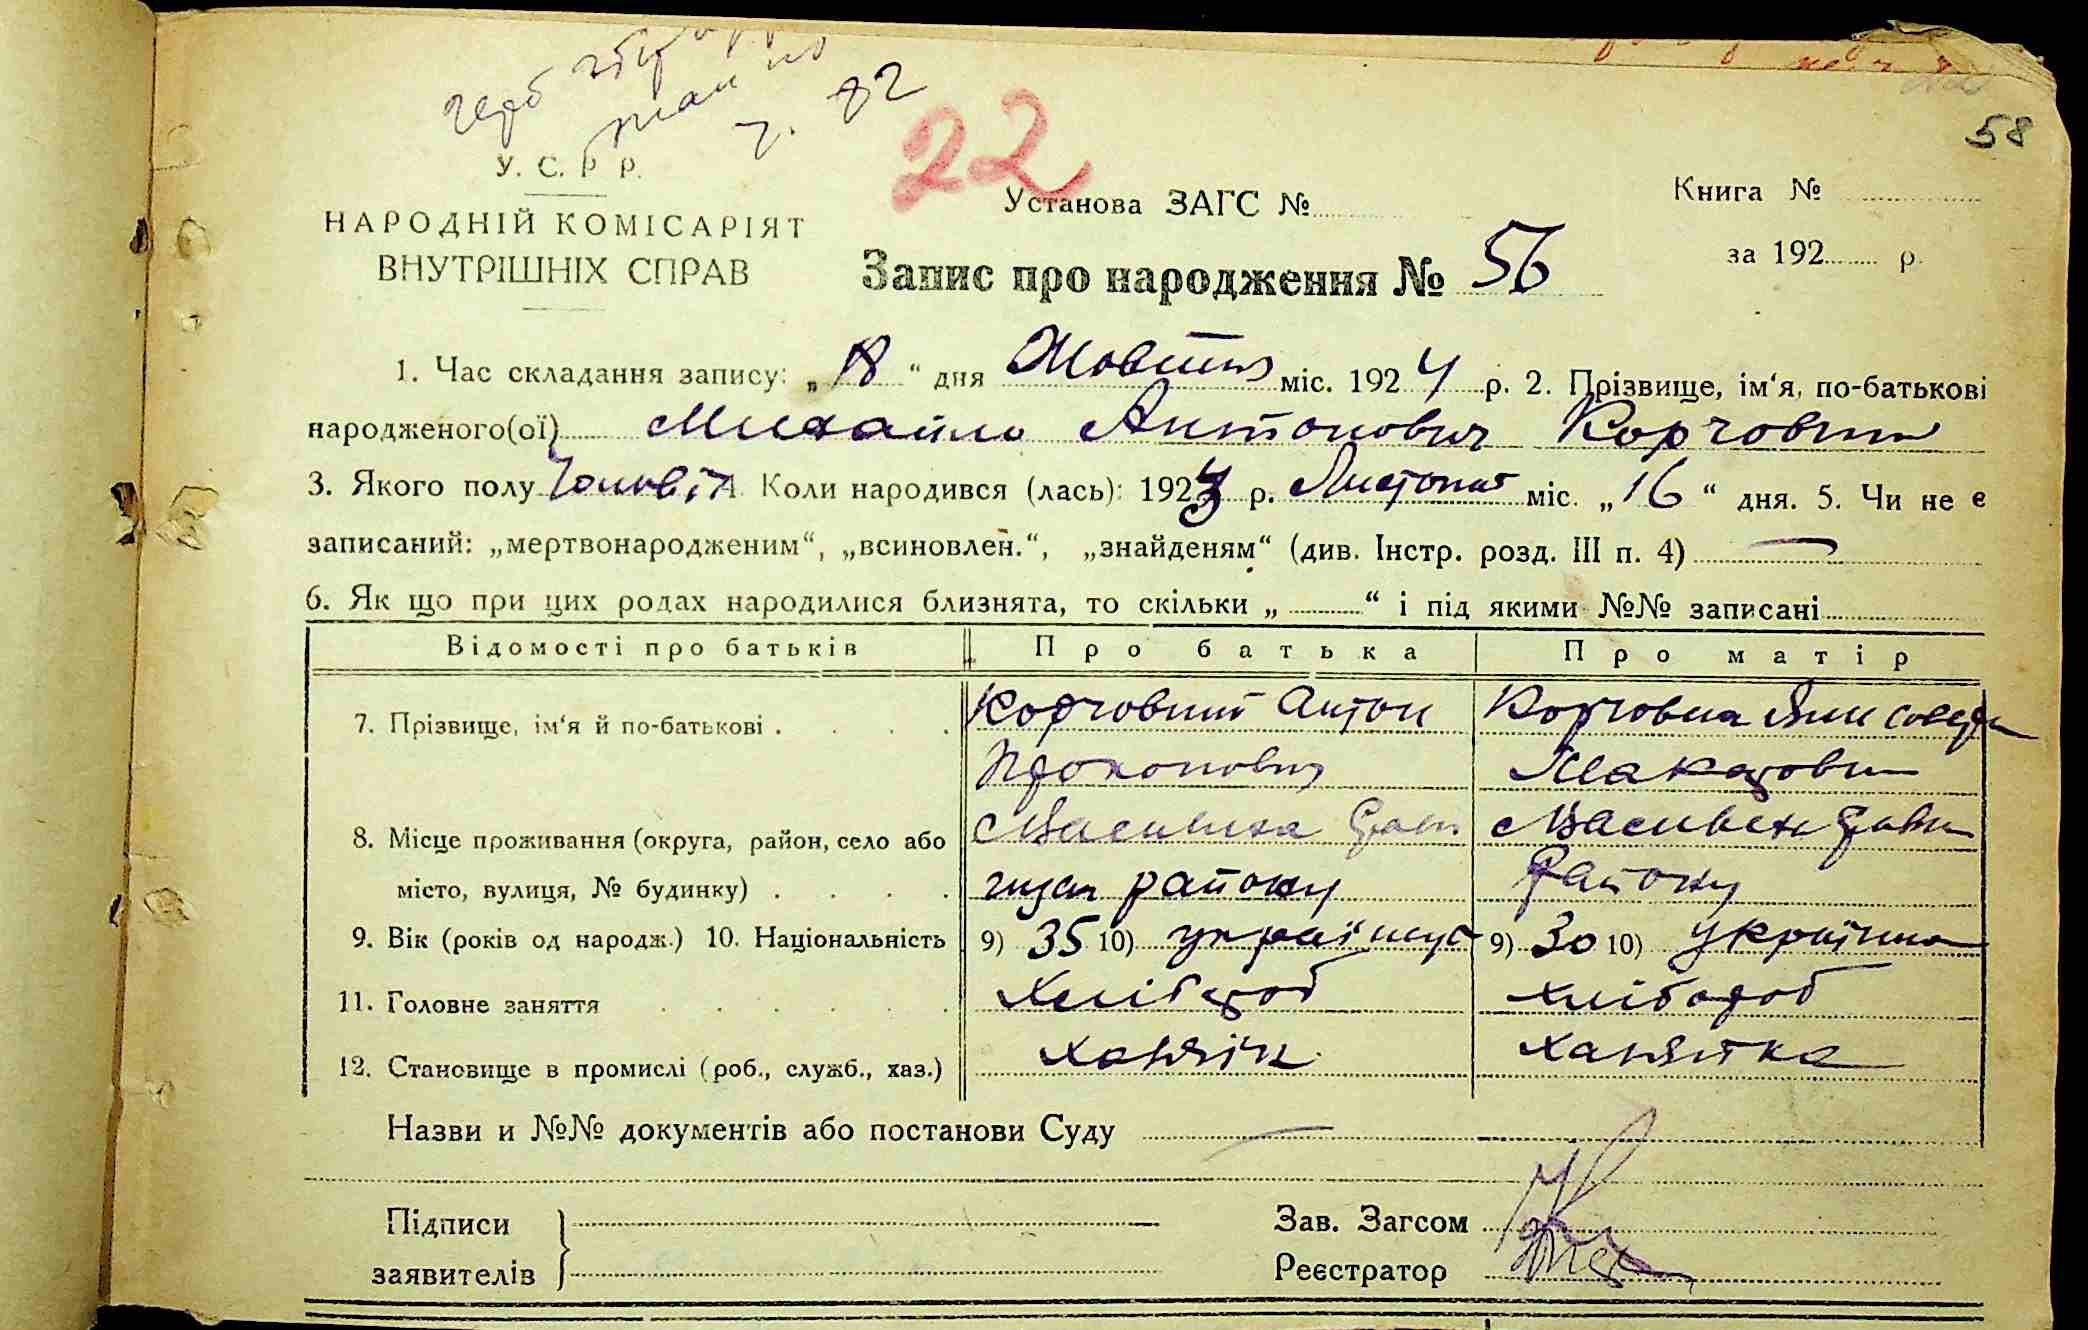 герб
7. 82
22
58
У. С. Р Р.
НАРОДНІЙ КОМІСАРІЯТ
ВНУТРІШНІХ СПРАВ
Установа ЗАГС №
Книга №
за 192 р.
Запис про народження № 56
1. Час складання запису: „18“ дня Жовтня міс. 1924 р. 2. Прізвище, ім‘я, по-батькові
народженого(ої) Михайло Антонович Корчовний
3. Якого полу Чоловіч 4. Коли народився (лась): 1923 р. Листопад міс. „16“ дня. 5. Чи не є
записаний: „мертвонародженим“, „всиновлен.“, „знайденям“ (див. Інстр. розд. III п. 4) —
6. Як що при цих родах народилися близнята, то скільки „ “ і під якими №№ записані
Відомості про батьків Про батька Про матір
7. Прізвище, ім‘я й по-батькові . . . . Корчовний Антон Корчовна
Прокопович Макаровна
8. Місце проживання (округа, район, село або
місто, вулиця, № будинку) . . . . району району
9. Вік (років од народж.) 10. Національність 9) 35 10) українець 9) 30 10) українка
11. Головне заняття . . . . . . Хлібороб хлібороб
12. Становище в промислі (роб., служб., хаз.) хазяїн хазяйка
Назви и №№ документів або постанови Суду —
Підписи
заявителів
Зав. Загсом
Реєстратор